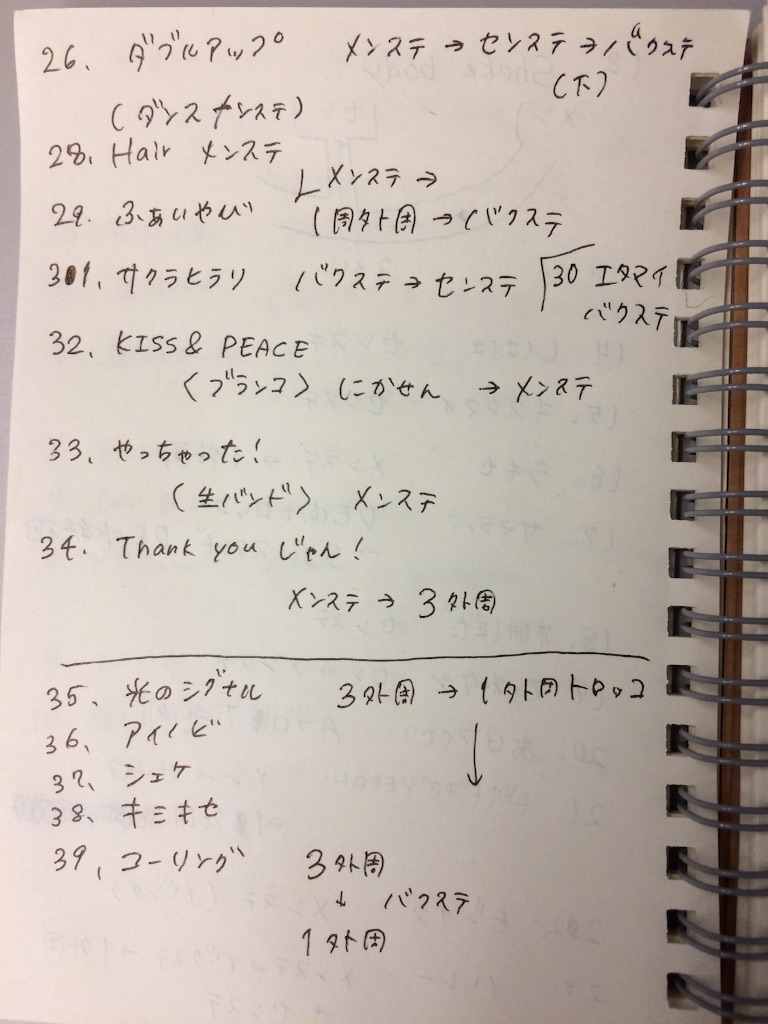 26. ダブルアップ メンステ→センステ→バクステ
(下)
(ダンスメンステ)
28. Hair メンステ
29. ふぁいやび メンステ→
1周外周→バクステ
31. サクラヒラリ バクステ→センステ 30 エタマイ
バクステ
32. KISS & PEACE
(ブランコ) にかせん →メンステ
33. やっちゃった!
(生バンド) メンステ
34. Thank you じゃん!
メンステ→3外周
35. 光のシグナル 3外周→1外周トロッコ
36. アイノビ ↓
37. シェケ
38. キミキセ
39. コーリング 3外周
↓ バクステ
1外周